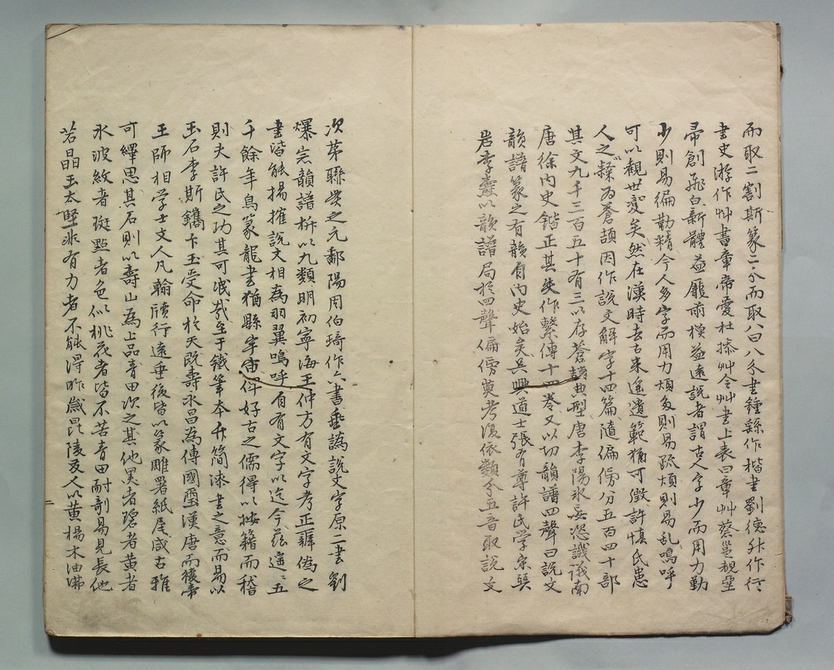 而取二割斯篆二分而取八曰八分書鍾繇作楷書劉德昇作行
書史游作艸書章帝愛杜操艸令艸書上表曰章艸蔡邕覩堊
帚創飛白新體益雕前模益遠說者謂古人字少而用力勤
少則易徧勤精今人多字而用力煩多則易疏煩則易乱嗚呼
可以觀世變矣然在漢時去古未遙遺範猶可徵許慎氏患
人之 蒼頡因作說文解字十四篇隨偏傍分五百四十部
其文九千三百五十有三以存蒼頡典型唐李陽氷 恣譏議南
唐徐內史鍇正其失作繫傳十四卷又以切韻譜四聲曰說文
韻譜篆之有韻自內史始矣吳興道士張有尊許氏學宗吳
岩李燾以韻譜局於四聲偏傍莫考復依類分五音取說文
次第聯貫之元鄱陽周伯琦作六書 譌說文字原二書劉
爆 韻譜 以九類明初寧海王仲方有文字考正 偽之
書皆能揚搉說文相為羽翼嗚呼自有文字以迄今茲遙遙五
千餘年鳥篆龍書猶縣 好古之儒得以按籍而稽
則夫許氏之功其可泯哉至于鐵筆本亦簡漆書之意而易以
玉石李斯鐫卞玉受命於天既壽永昌為傳國璽漢唐而 帝
王師相學士文人凡翰牘行遠垂後皆以篆雕署紙尾咸古雅
可繹思其石則以壽山為上品青田次之其他昊者碧者黃者
氷波紋者斑點者色似桃花者皆不若青田耐刻易見長他
若晶玉太堅非有力者不能得昨歲毘陵友人以黃楊木油沸